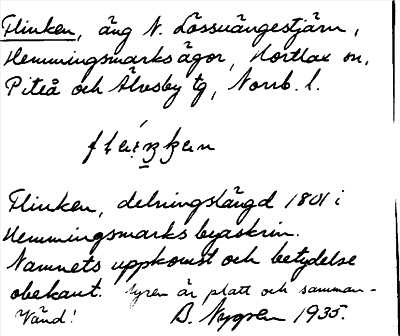 Flinken, äng N. Lössuängestjärn,
Hemmingsmarks ägor, Hortlax sn,
Piteå och Älvsby tg, Norrb. l.
Flinken, delningslängd 1801 i
Hemmingsmarks byaskrin.
Namnets uppkomst och betydelse
obekant. Lyren är platt och samman-
Vänd! B. Nygren 1935.